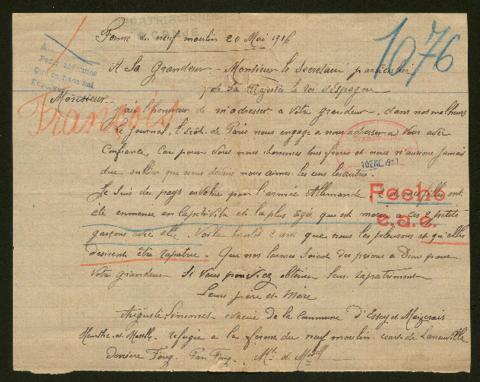 Ferme du neuf moulin 20 Mai 1916
1076
A Sa Grandeur - Monsieur le Secrétaire particulier
de Sa Majesté le roi d'Espagne
Monsieur
Francés
J'ai l'honneur de m'adresser à votre grandeur, dans nos malheurs
le journal, l'écho de Paris nous engage à nous adresser a vous avec
Confiance, car pour vous nous sommes tous frères et nous n'aurions jamais
dû oublier que nous devions nous aimer les uns les autres.
10 ENE. 1917
Je suis du pays envahie par l'armée Allemande
été emmenée en captivité et la plus âgée qui est mariée a ces 2 petits
garçons avec elle. Voila bientôt 2 ans que nous les pleurons et qu'elles
desirent être rapatrié. Que nos larmes soient des prières à Dieu pour
Fecho
c.a.e.
votre grandeur si vous pouviez obtenir leur rapatriement
Leurs père et mère
Auguste Simonet évacué de la Commune d'Essey et Maizerais
Meurthe-et-Moselle réfugié a la ferme du neuf moulin
derrière Foug. Par Foug. Mthe et Mselle